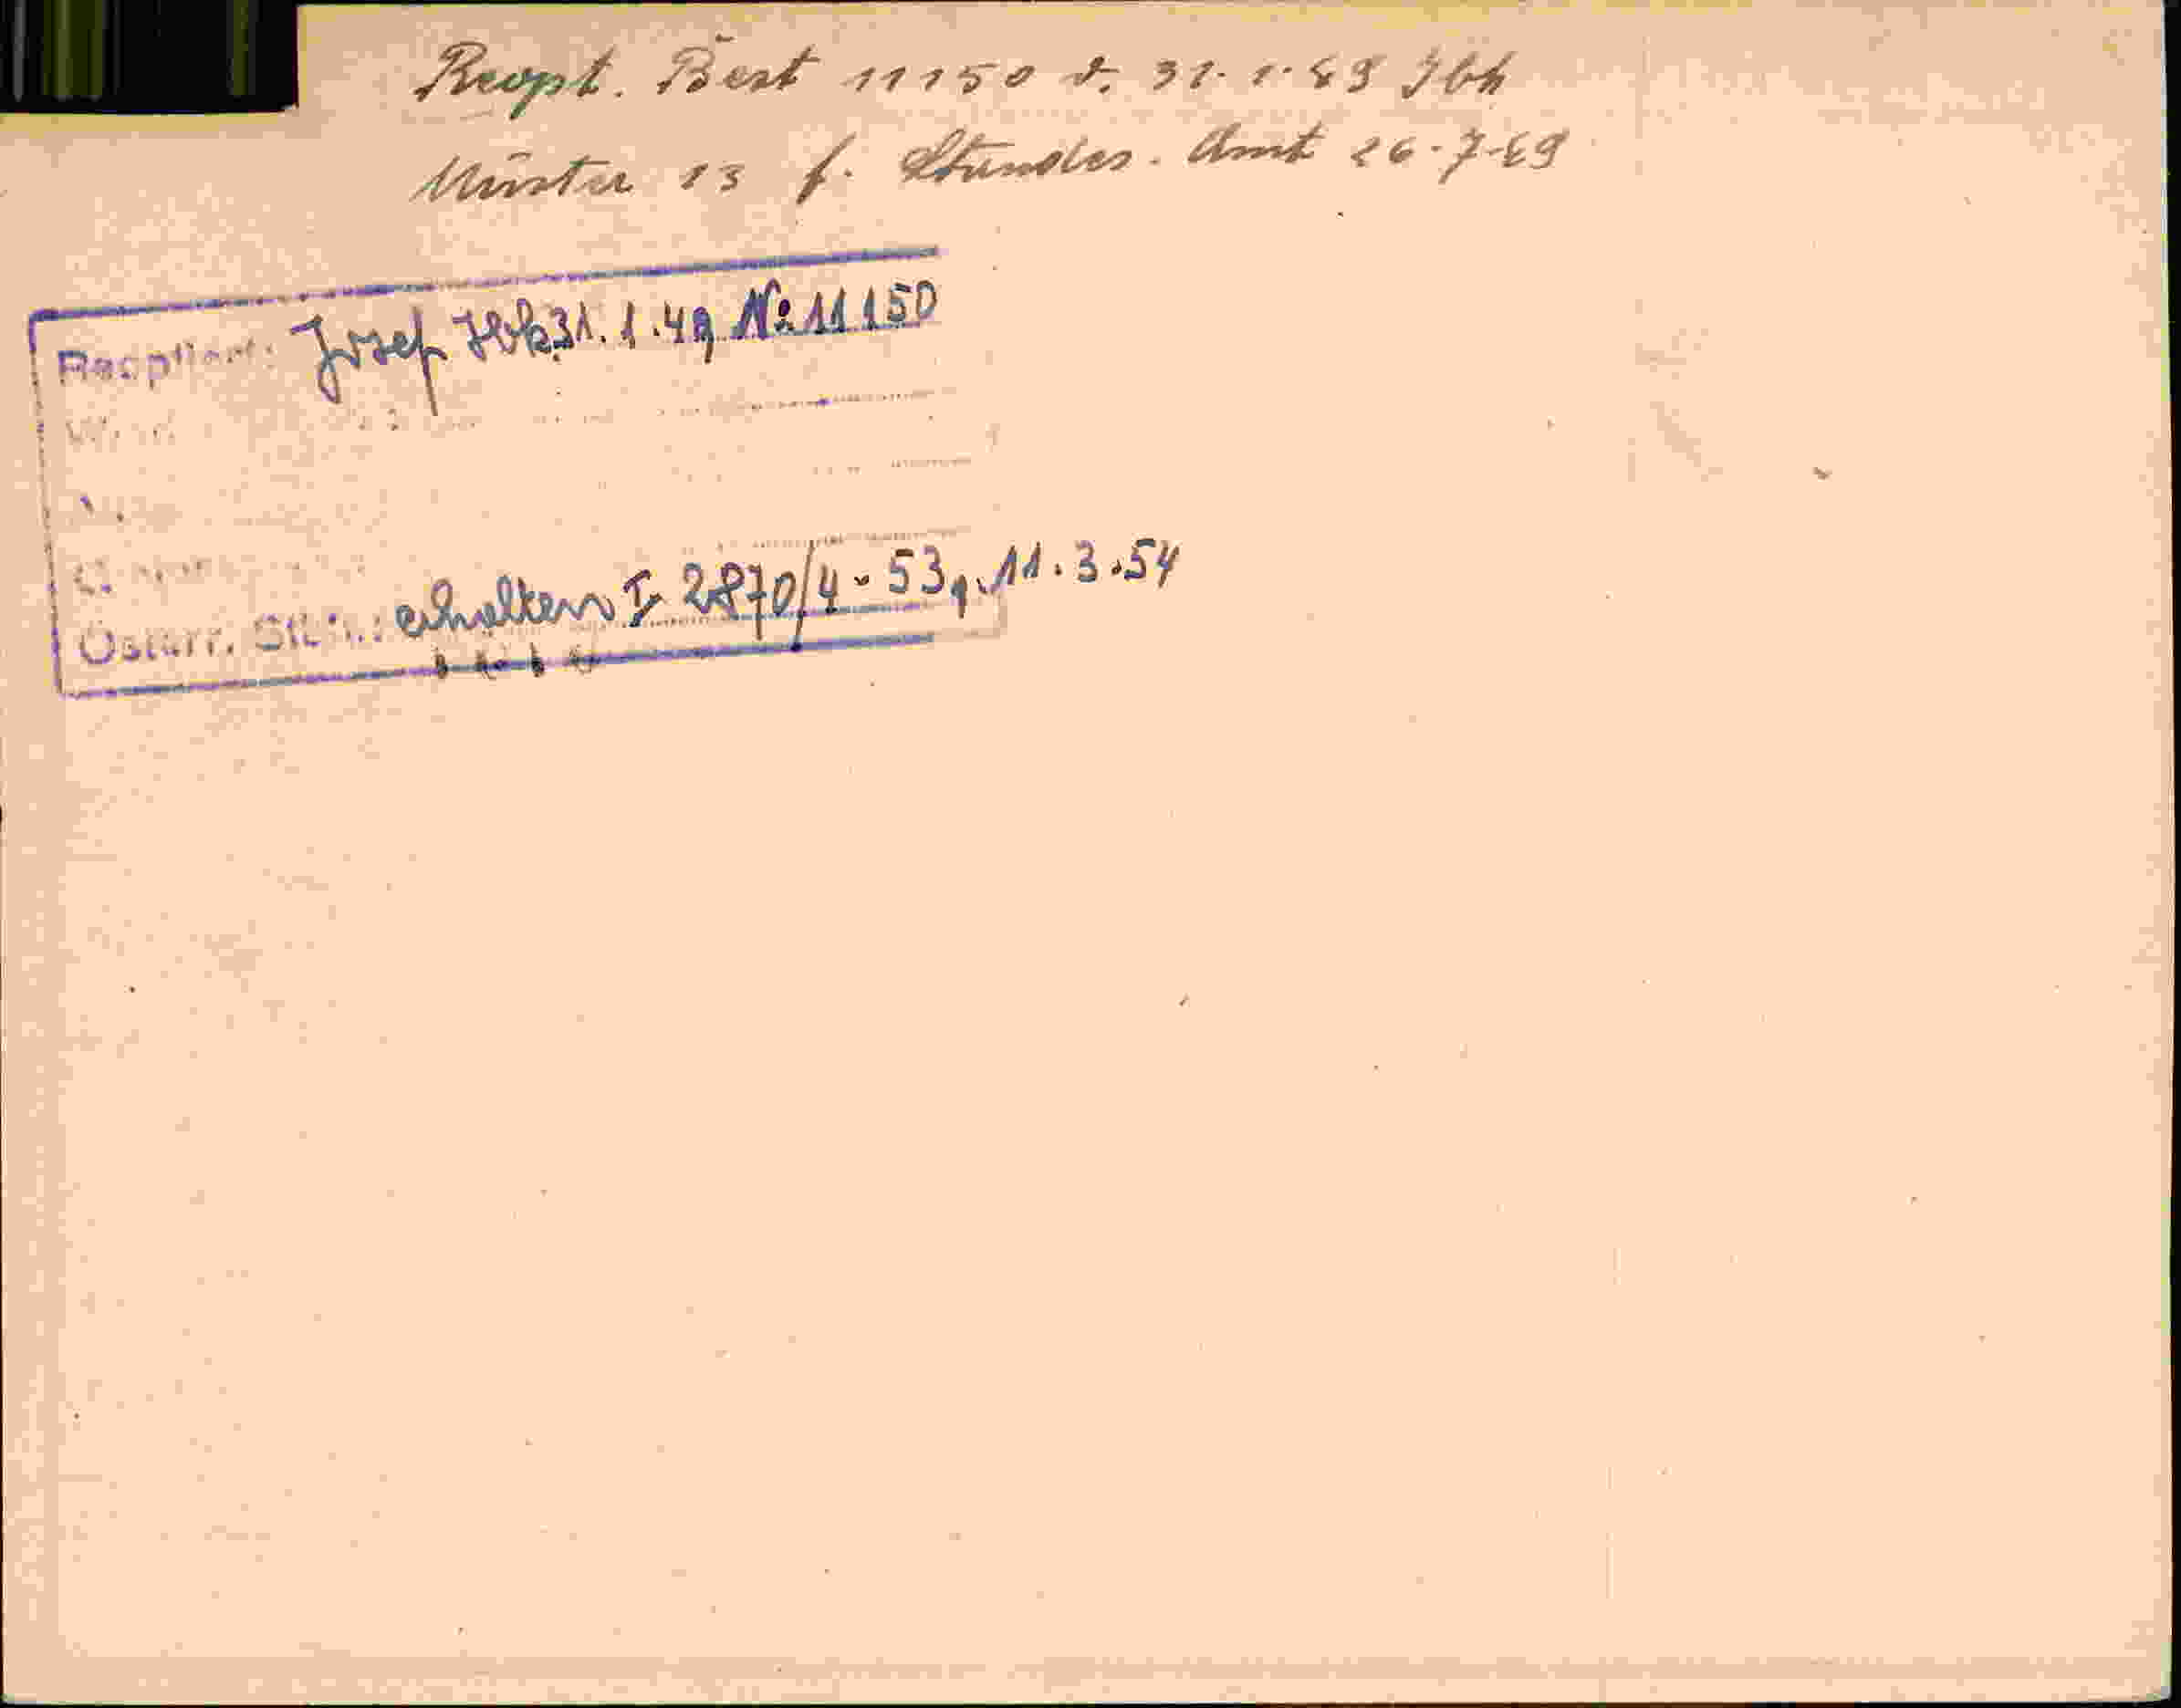 Reopt. Best 11150 v. 31.1.49 Ibk
Münster 13 f. Standes. Amt 26-7-49
Reoptiert: Josef Ibk. 31.1.49 No 11150
Österr. Stb.: erhalten I 2870/4-53 11.3.54